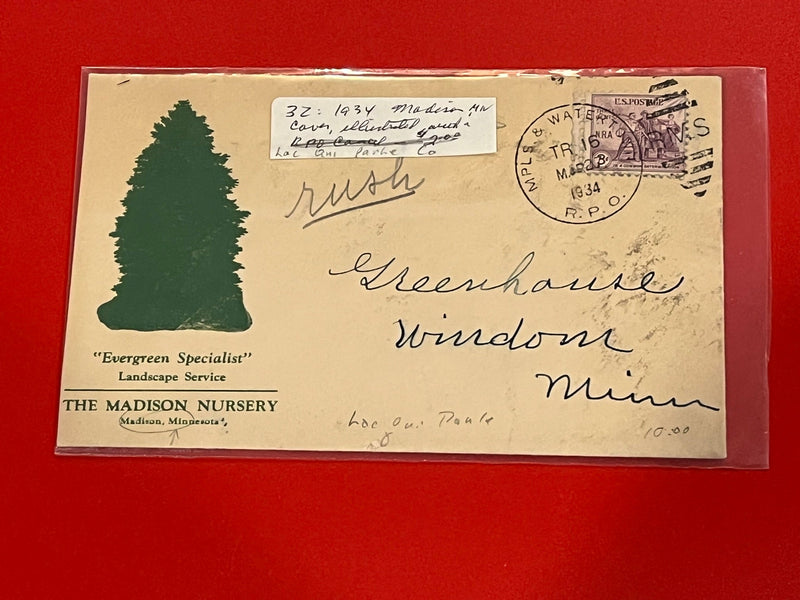 32: 1934 Madison MN
Cover, illustrated
RPO Cancel
Lac Qui Parle Co
rush
U.S. POSTAGE
NRA
MPLS & WATER
TR. 16
1934
R.P.O.
S
Greenhouse
Windom
Minn
"Evergreen Specialist"
Landscape Service
THE MADISON NURSERY
Madison, Minnesota
Lac Qui Parle
10.00